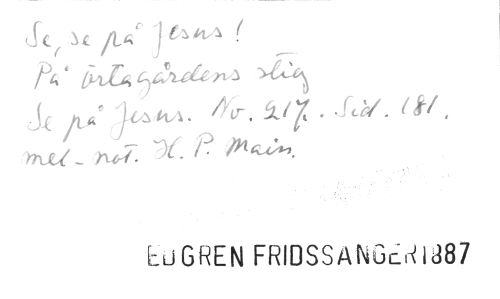 Se, se på Jesus!
På örtagårdens stig
Se på Jesus. No. 217. Sid. 181.
mel-not. H. P. Main.
EDGREN FRIDSSÅNGER 1887